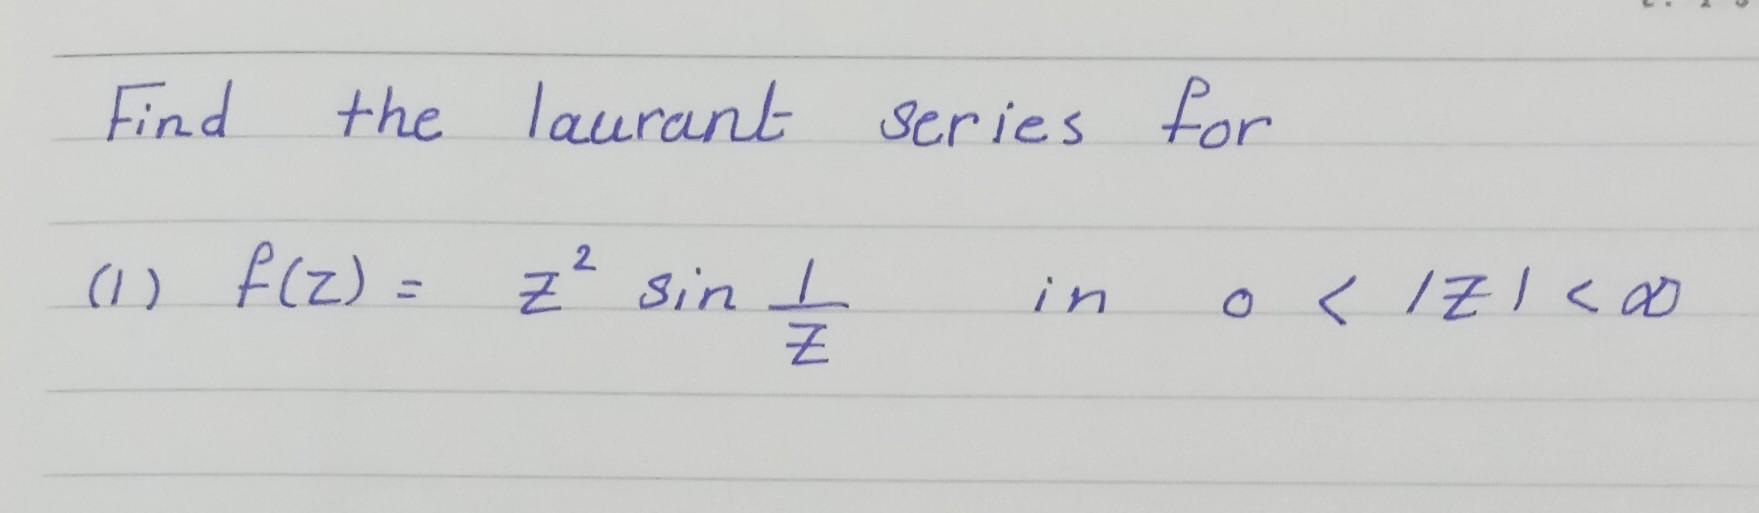 Find the laurant series for
(1) f(z) = z² sin 1/z in 0 < |z| < ∞